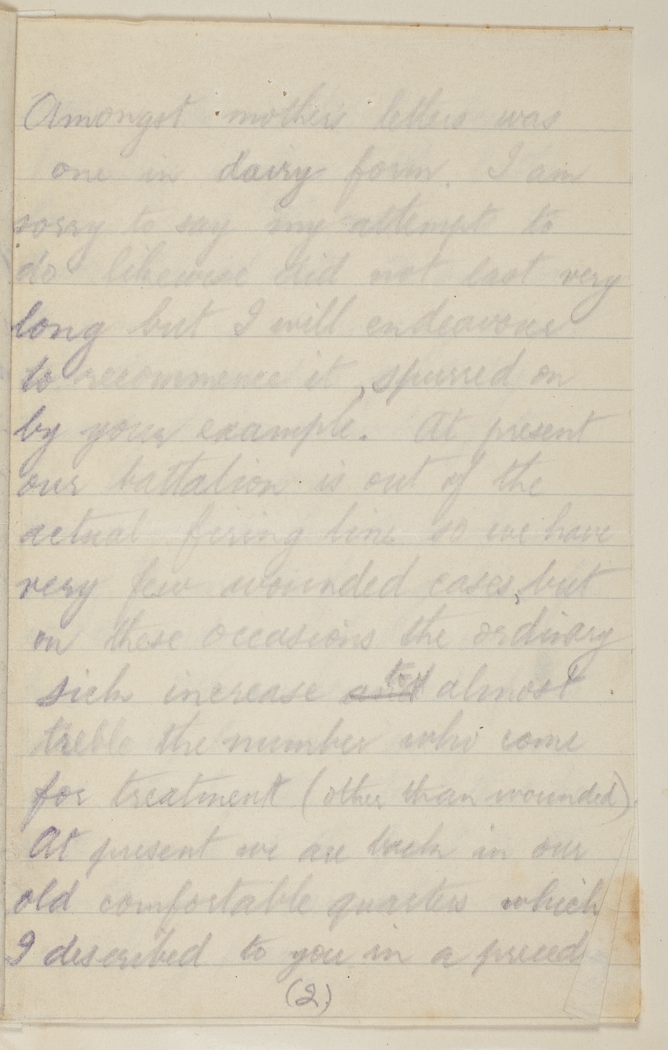 Amongst mothers letters was
one in dairy form. I am
sorry to say my attempt to
do likewise did not last very
long but I will endeavour
to recommence it, spurred on
by your example. At present
our battalion is out of the
actual firing line so we have
very few wounded cases, but
on these occasions the ordinary
sick increase to almost
treble the number who come
for treatment (other than wounded).
At present we are back in our
old comfortable quarters which
I described to you in a preced
(2)